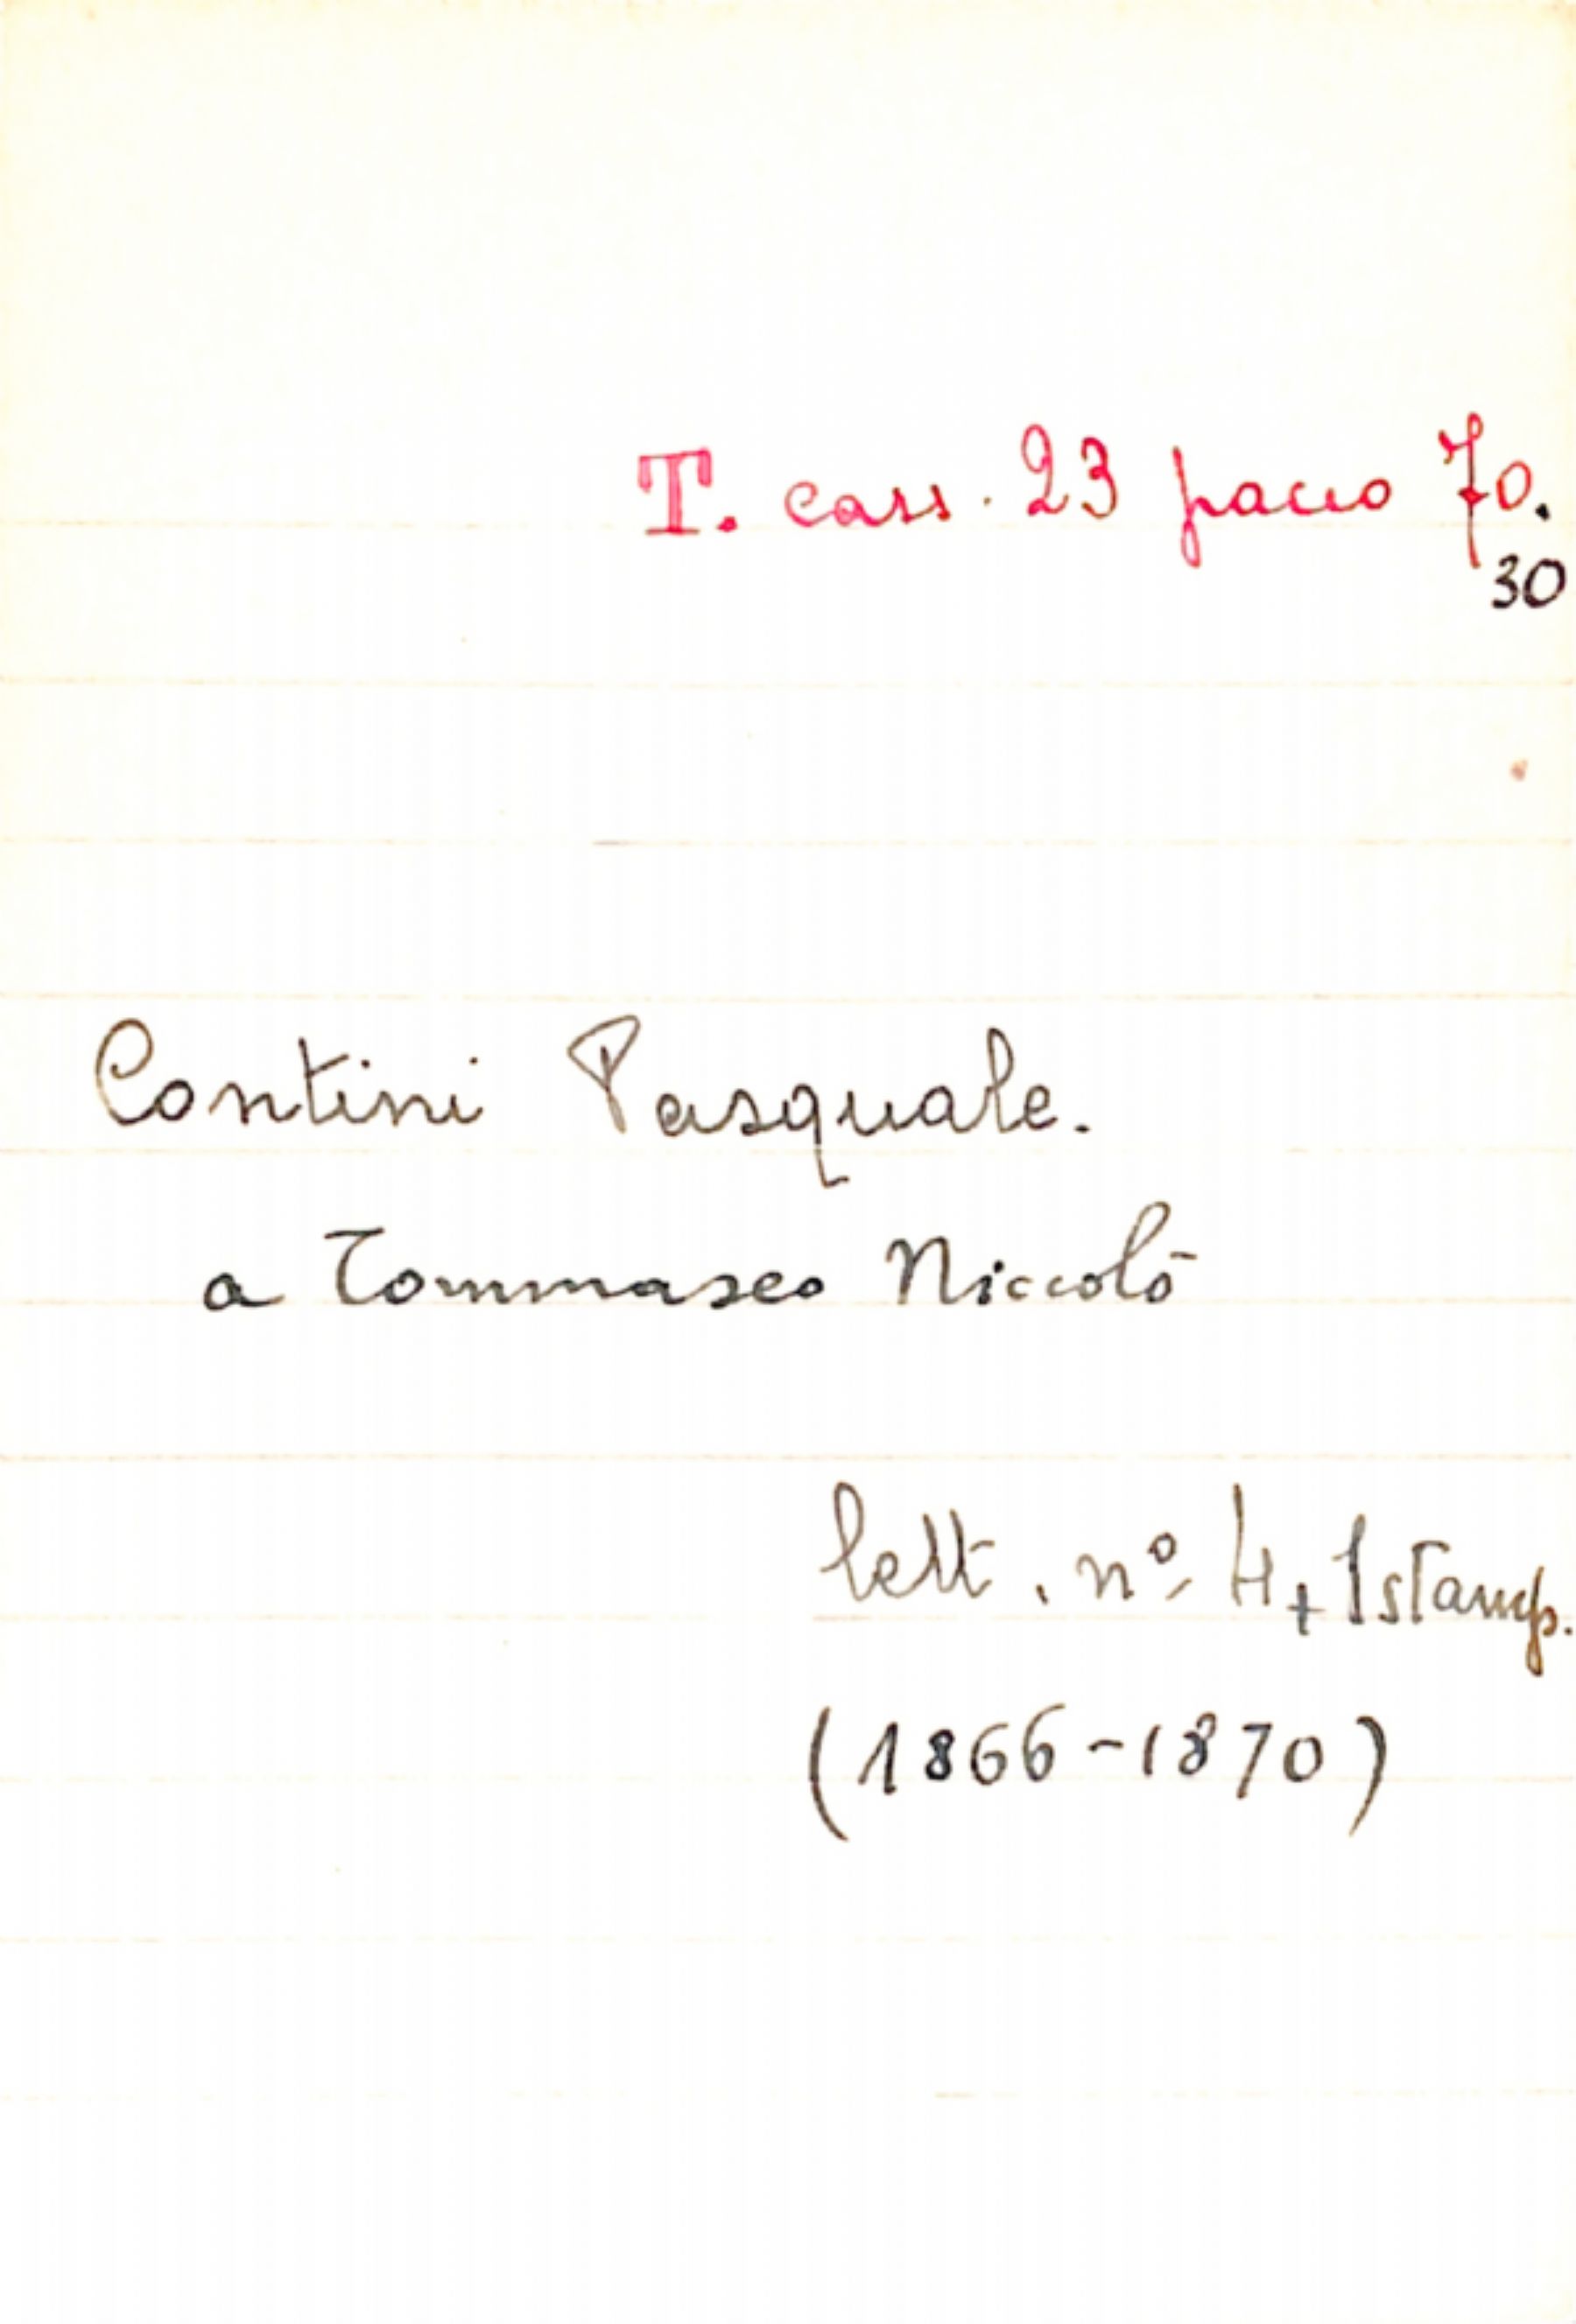 T. cass. 23 pacco 70.
30
Contini Pasquale.
a Tommaseo Niccolò
lett. nº 4 + 1 stamp.
(1866-1870)